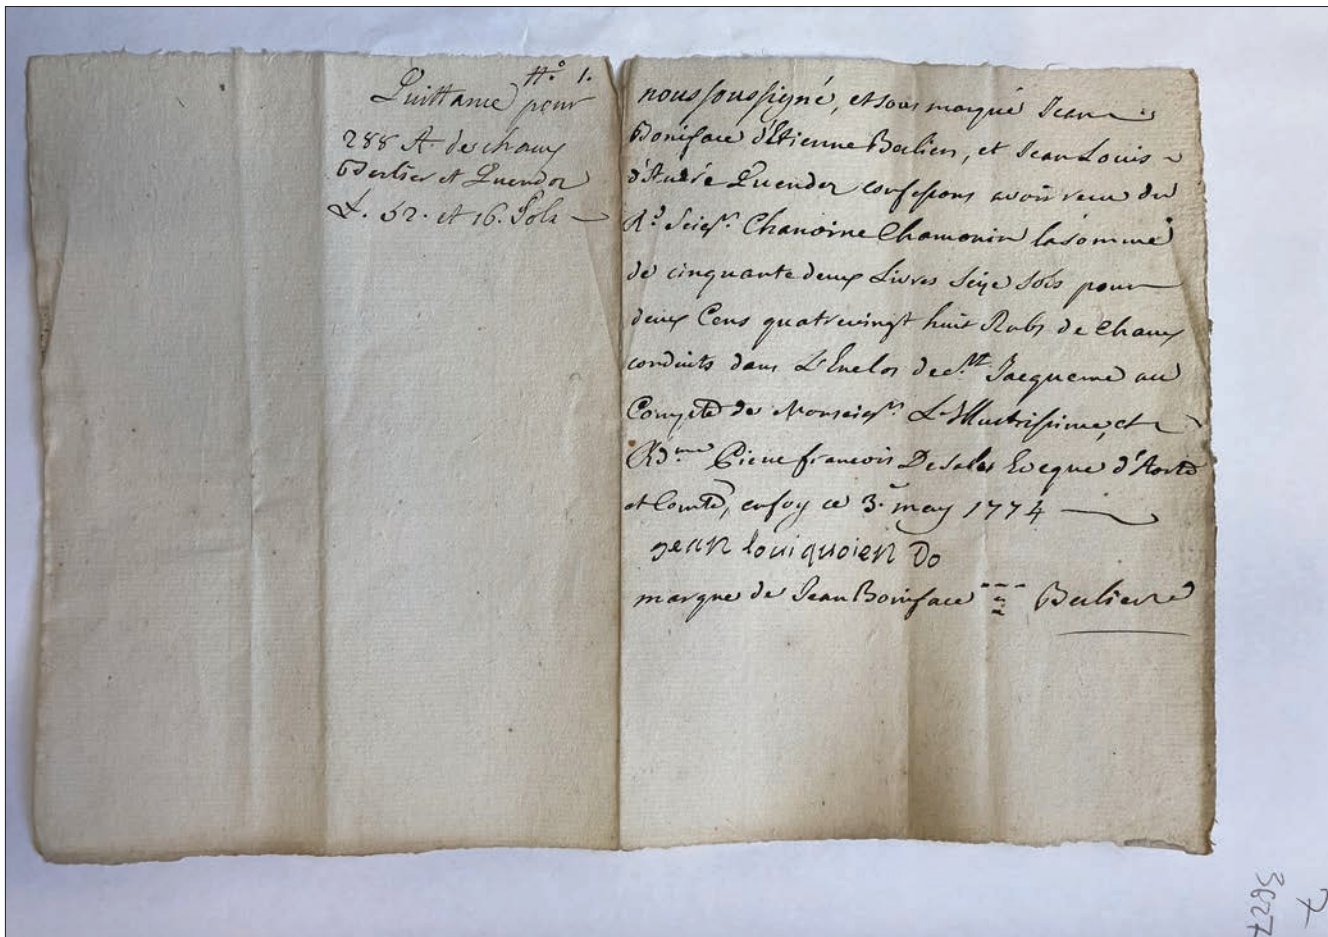 N.° 1.
Quittance pour
288 R. de chaux
Berlier et Quendoz
L. 52. et 16. Sols
nous soussigné, et sous marqué Jean
Boniface d'Etienne Berlier, et Jean Louis
d'André Quendoz confessons avoir receu du
R.d Seigr. Chanoine Chamonin la somme
de cinquante deux Livres seize sols pour
deux Cens quatrevingt huit Rubs de Chaux
conduits dans L'Enclos de St. Jacqueme au
Compte de Monseigr. L'Illustrissime, et
Rdme Pierre francois De Sales Eveque d'Aoste
et Comte, en foy ce 3. may 1774
jean loui quoien do
marque de Jean Boniface Berlier
3627
7